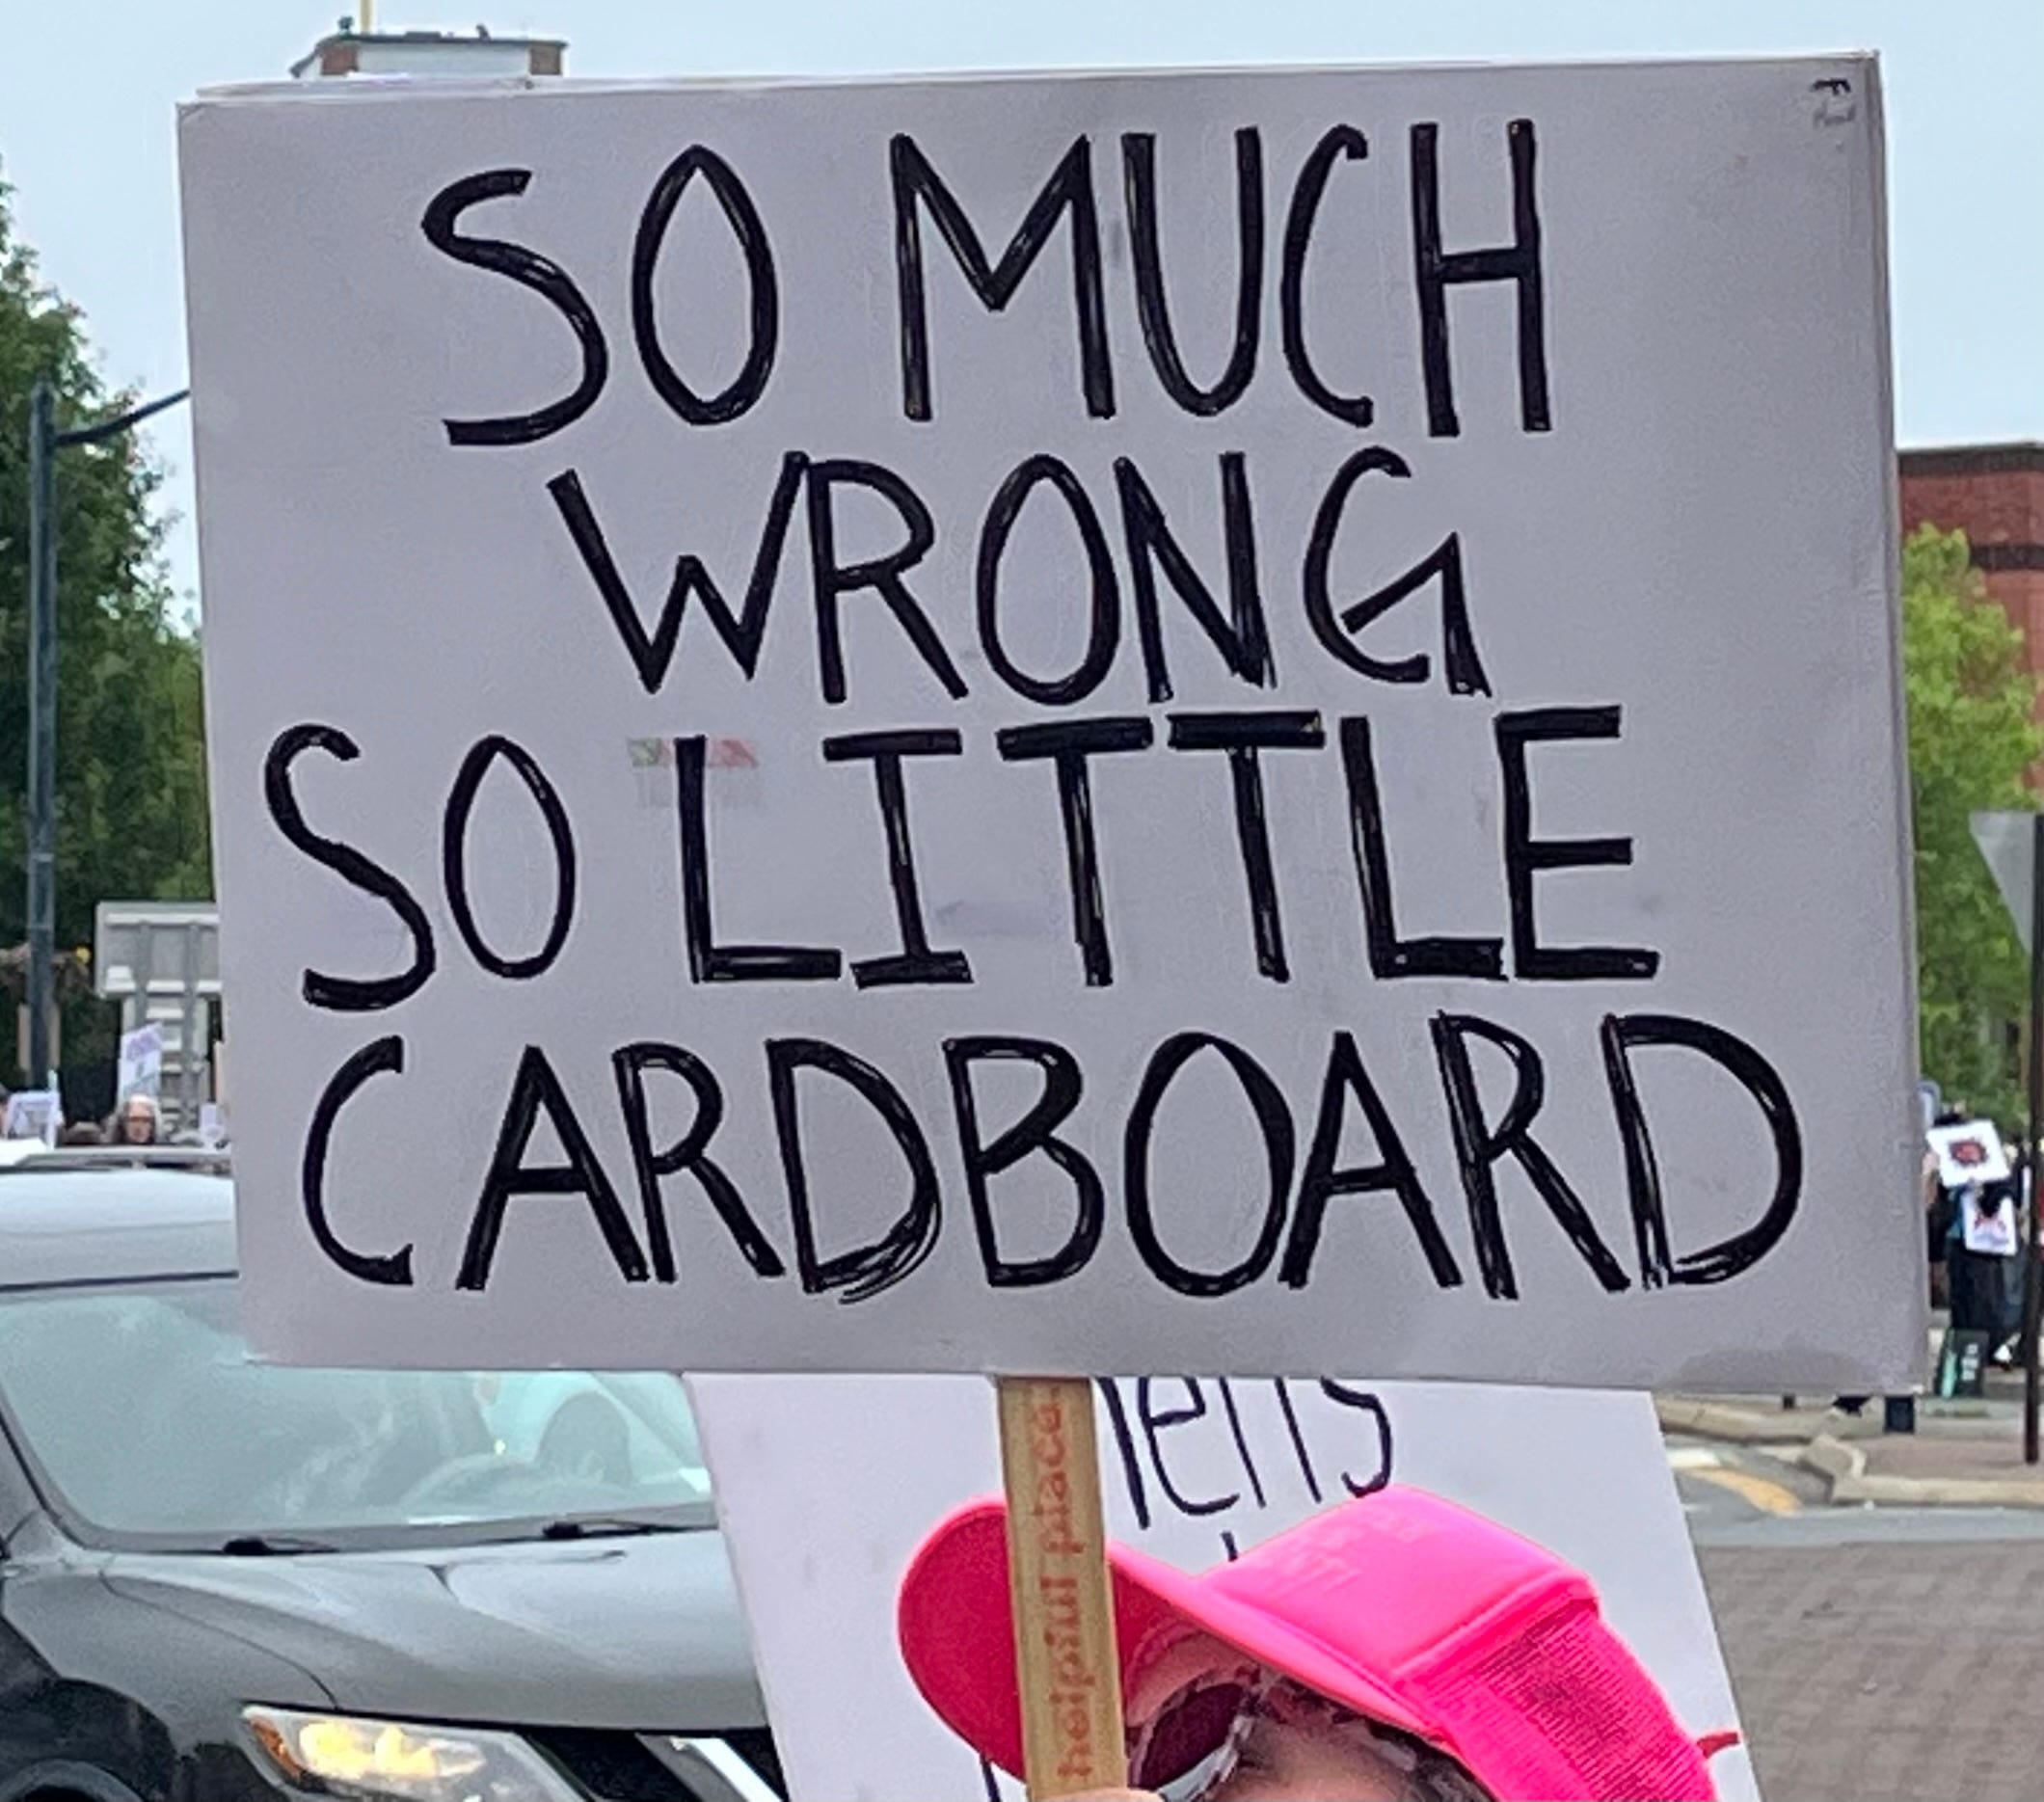 SO MUCH
WRONG
SO LITTLE
CARDBOARD
helpful place.